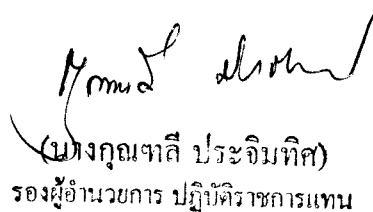 (นางกุณฑาลี ประจิมทิศ)
รองผู้อำนวยการ ปฏิบัติราชการแทน